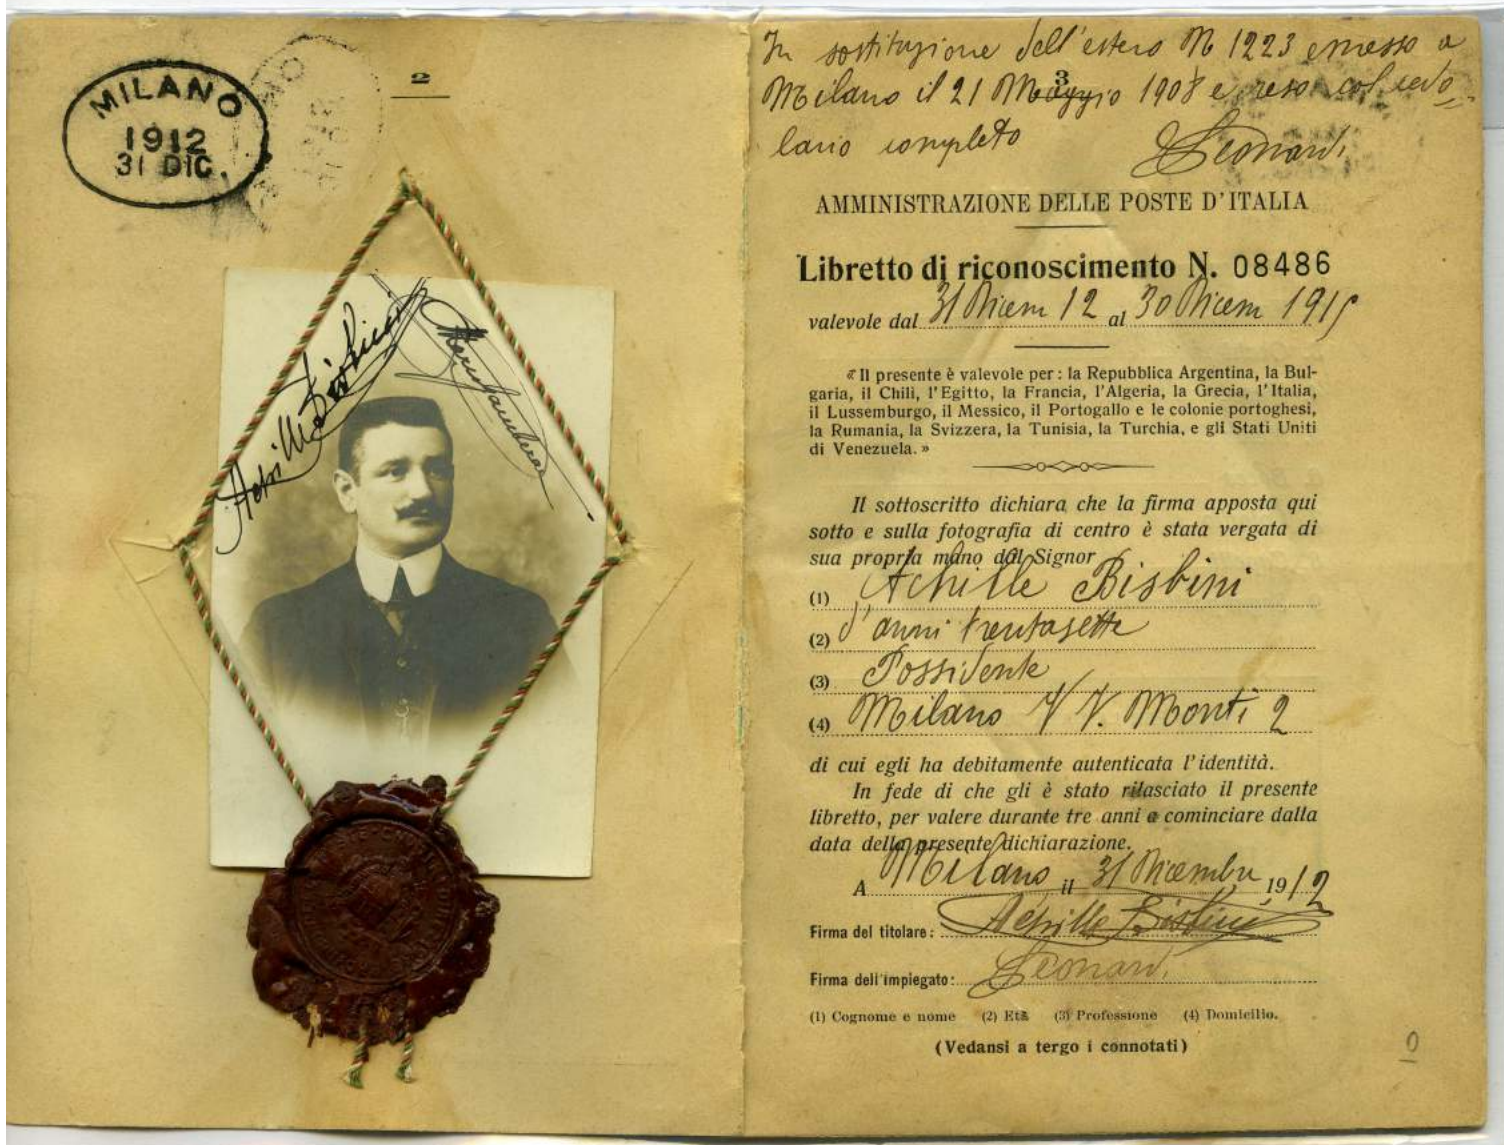 MILANO
1912
31 DIC.
2
In sostituzione dell'estero N 1223 emesso a
3
Milano il 21 Maggio 1908 e reso col cedo
lario completo
Leonardi
AMMINISTRAZIONE DELLE POSTE D'ITALIA
Libretto di riconoscimento N. 08486
valevole dal 31 Dicem 12 al 30 Dicem 1915
« Il presente è valevole per : la Repubblica Argentina, la Bul-
garia, il Chilì, l'Egitto, la Francia, l'Algeria, la Grecia, l'Italia,
il Lussemburgo, il Messico, il Portogallo e le colonie portoghesi,
la Rumania, la Svizzera, la Tunisia, la Turchia, e gli Stati Uniti
di Venezuela. »
Achille Bisbini
Il sottoscritto dichiara che la firma apposta qui
sotto e sulla fotografia di centro è stata vergata di
sua propria mano dal Signor
(1) Achille Bisbini
(2) d'anni trentasette
(3) Possidente
(4) Milano V V. Monti 2
di cui egli ha debitamente autenticata l'identità.
In fede di che gli è stato rilasciato il presente
libretto, per valere durante tre anni a cominciare dalla
data della presente dichiarazione.
A Milano il 31 Dicembre 1912
Firma del titolare : Achille Bisbini
Firma dell'impiegato : Leonardi
(1) Cognome e nome (2) Età (3) Professione (4) Domicilio.
(Vedansi a tergo i connotati)
0